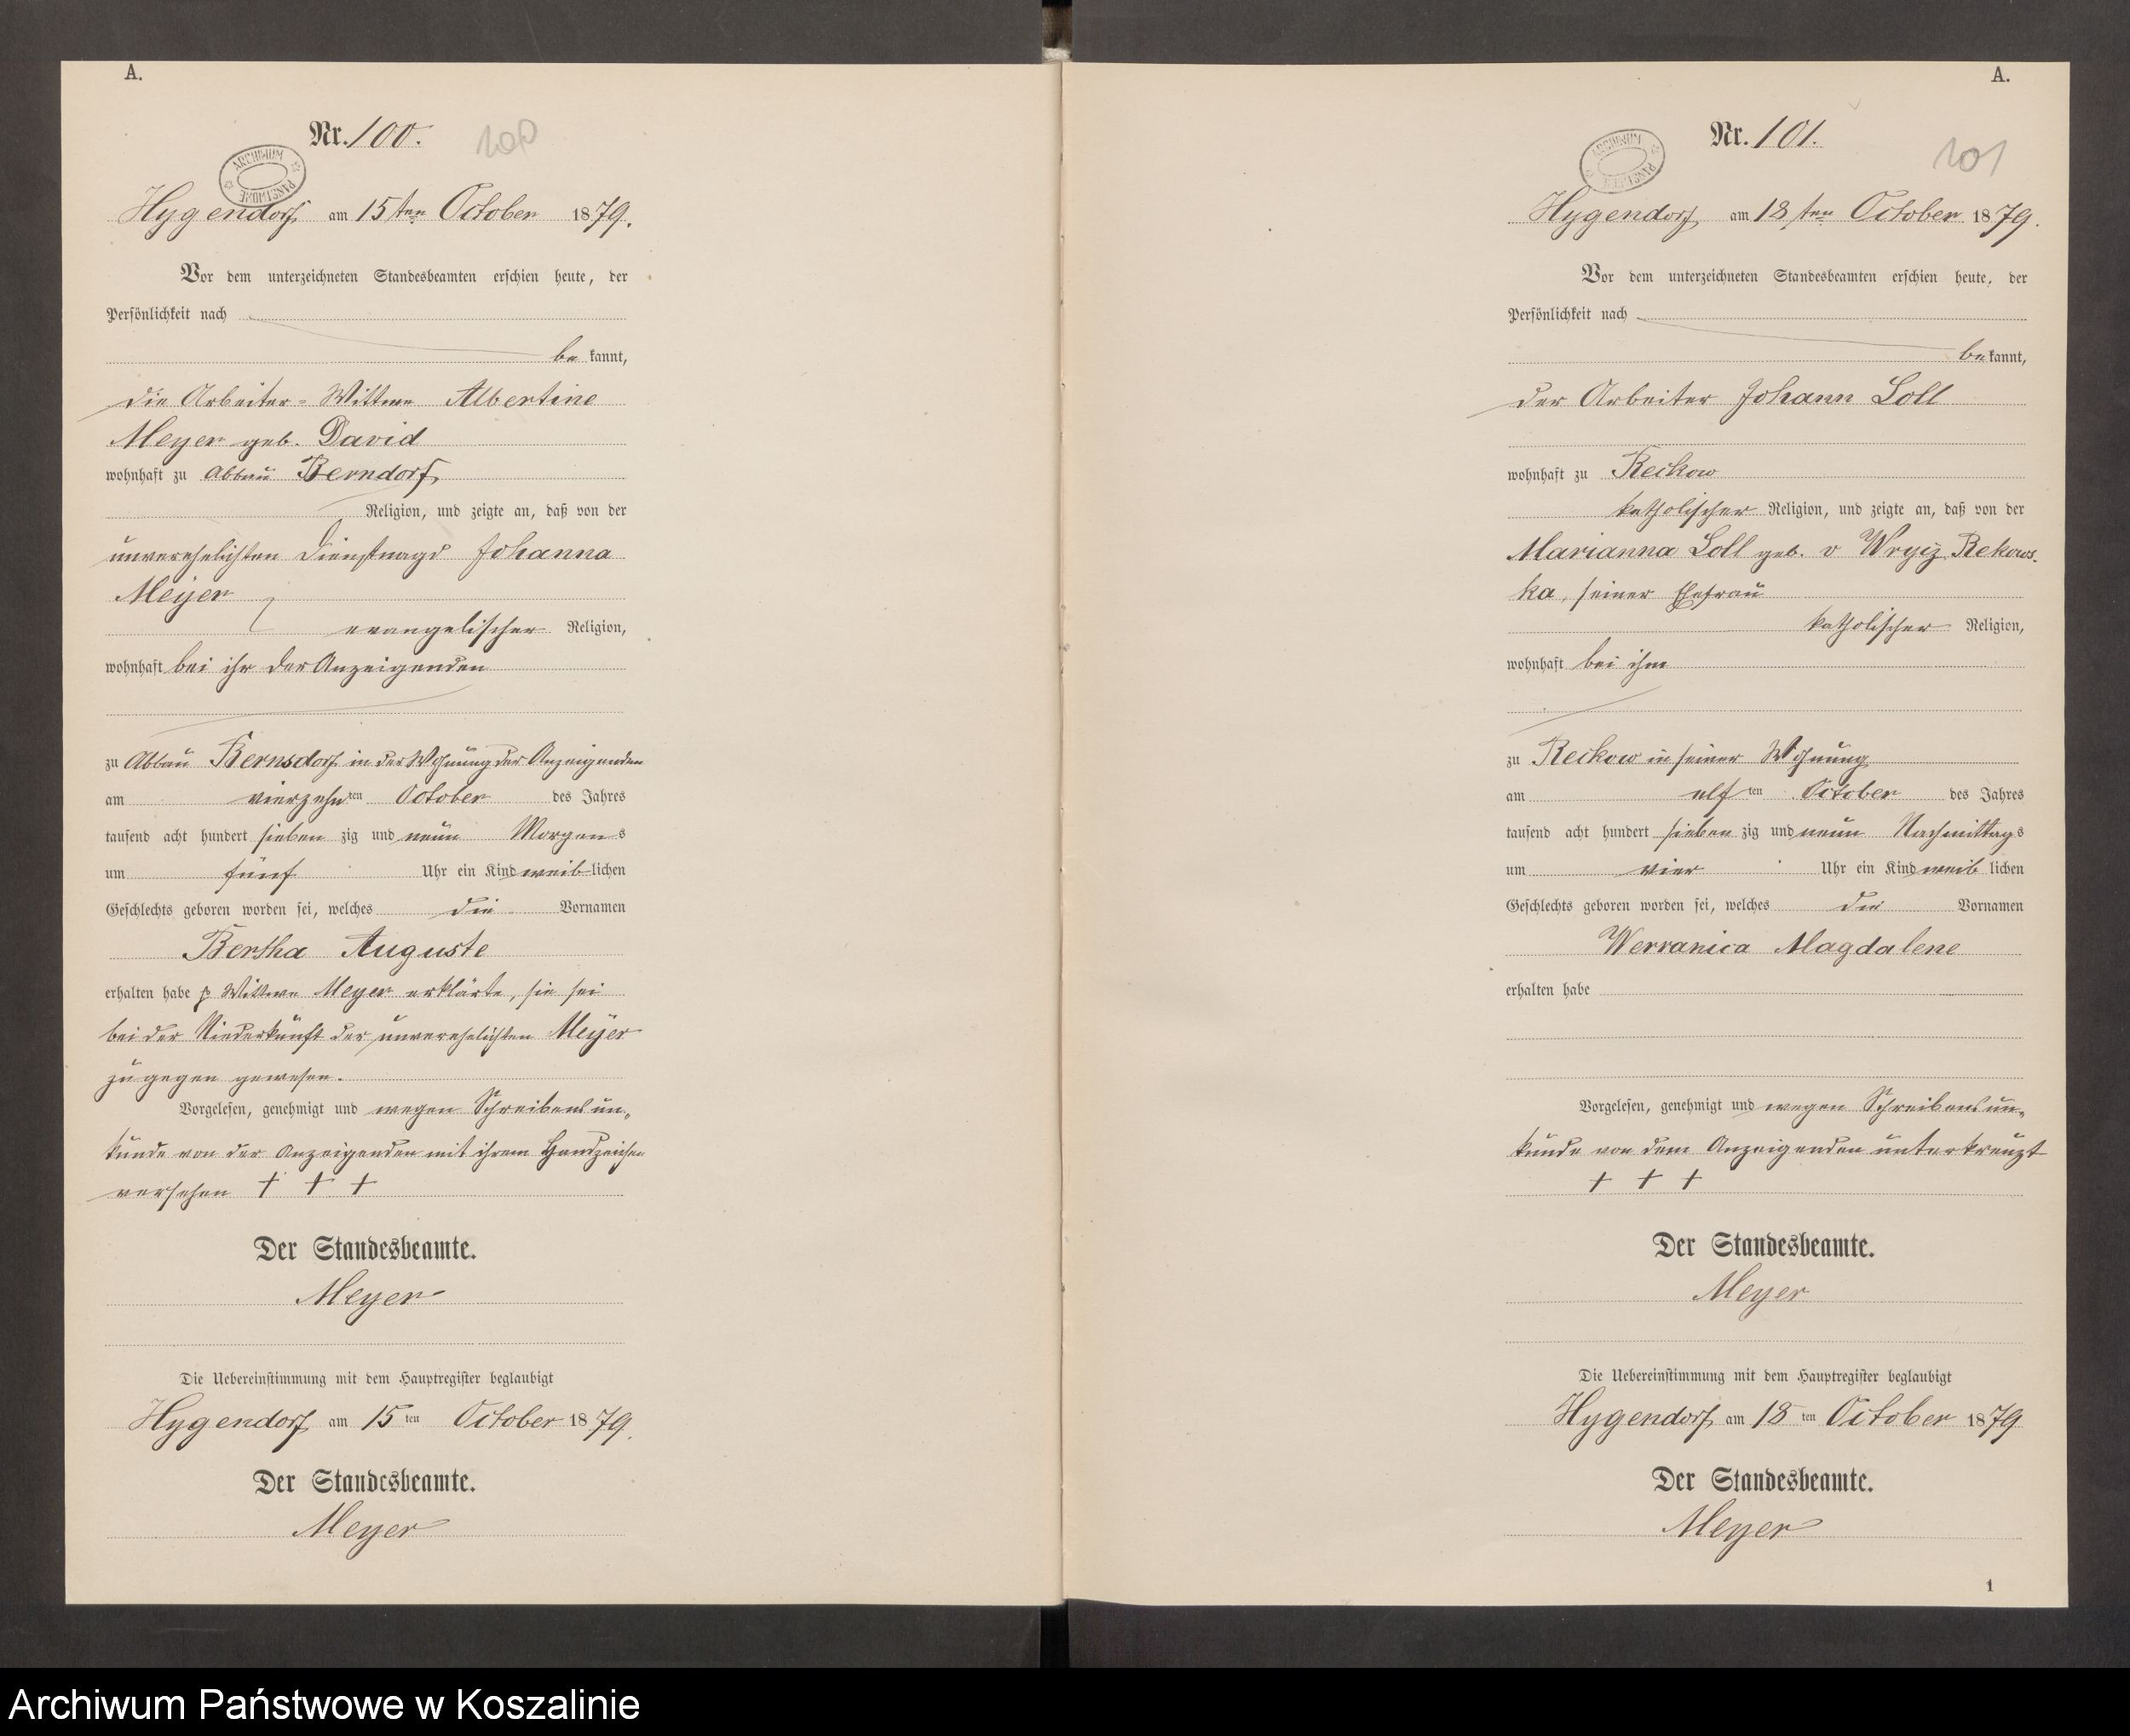 A.
Nr. 100.
100
ARCHIWUM PAŃSTWOWE
Hygendorf am 15ten October 1879.
Vor dem unterzeichneten Standesbeamten erschien heute, der
Persönlichkeit nach
be kannt,
die Arbeiter=Wittwe Albertine
Meyer geb. David
wohnhaft zu Abbau Berndorf
Religion, und zeigte an, daß von der
unverehelichten Dienstmagd Johanna
Meyer
evangelischer Religion,
wohnhaft bei ihr der Anzeigenden
zu Abbau Bernsdorf in der Wohnung der Anzeigenden
am vierzehn ten October des Jahres
tausend acht hundert sieben zig und neun Morgens
um fünf Uhr ein Kind weiblichen
Geschlechts geboren worden sei, welches die Vornamen
Bertha Auguste
erhalten habe p Wittwe Meyer erklärte, sie sei
bei der Niederkunft der unverehelichten Meyer
zugegen gewesen.
Vorgelesen, genehmigt und wegen Schreibensun-
kunde von der Anzeigenden mit ihrem Handzeichen
versehen + + +
Der Standesbeamte.
Meyer
Die Uebereinstimmung mit dem Hauptregister beglaubigt
Hygendorf am 15 ten October 1879.
Der Standesbeamte.
Meyer
A.
Nr. 101.
101
ARCHIWUM PAŃSTWOWE
Hygendorf am 18ten October 1879.
Vor dem unterzeichneten Standesbeamten erschien heute, der
Persönlichkeit nach
be kannt,
der Arbeiter Johann Loll
wohnhaft zu Reckow
katholischer Religion, und zeigte an, daß von der
Marianna Loll geb. v Wrycz Rekows-
ka, seiner Ehefrau
katholischer Religion,
wohnhaft bei ihm
zu Reckow in seiner Wohnung
am elf ten October des Jahres
tausend acht hundert sieben zig und neun Nachmittags
um vier Uhr ein Kind weib lichen
Geschlechts geboren worden sei, welches die Vornamen
Werranica Magdalene
erhalten habe
Vorgelesen, genehmigt und wegen Schreibensun-
kunde von dem Anzeigenden unterkreuzt
+ + +
Der Standesbeamte.
Meyer
Die Uebereinstimmung mit dem Hauptregister beglaubigt
Hygendorf am 18 ten October 1879
Der Standesbeamte.
Meyer
1
Archiwum Państwowe w Koszalinie